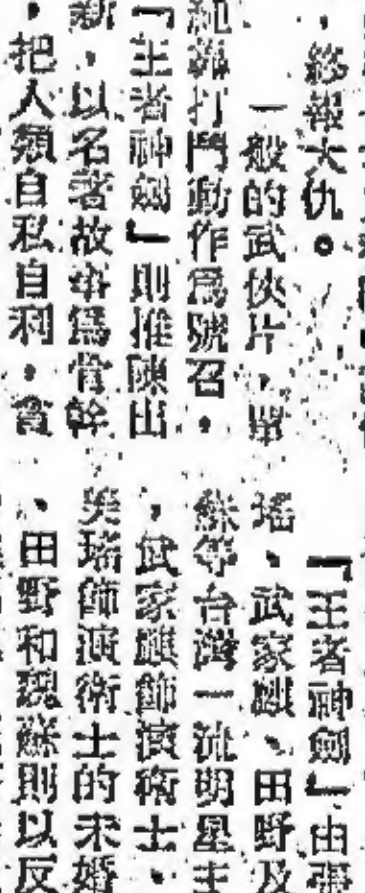 ，終報大仇。
一般的武俠片，單
純靠打鬥動作爲號召，
『王者神劍』則推陳出
新，以名著故事爲骨幹
，把人類自私自利，貪
『王者神劍』由張
瑤、武家麒、田野及
蘇等台灣一流明星主
，武家麒飾演術士，
美瑤飾演術士的未婚
、田野和魏蘇則以反